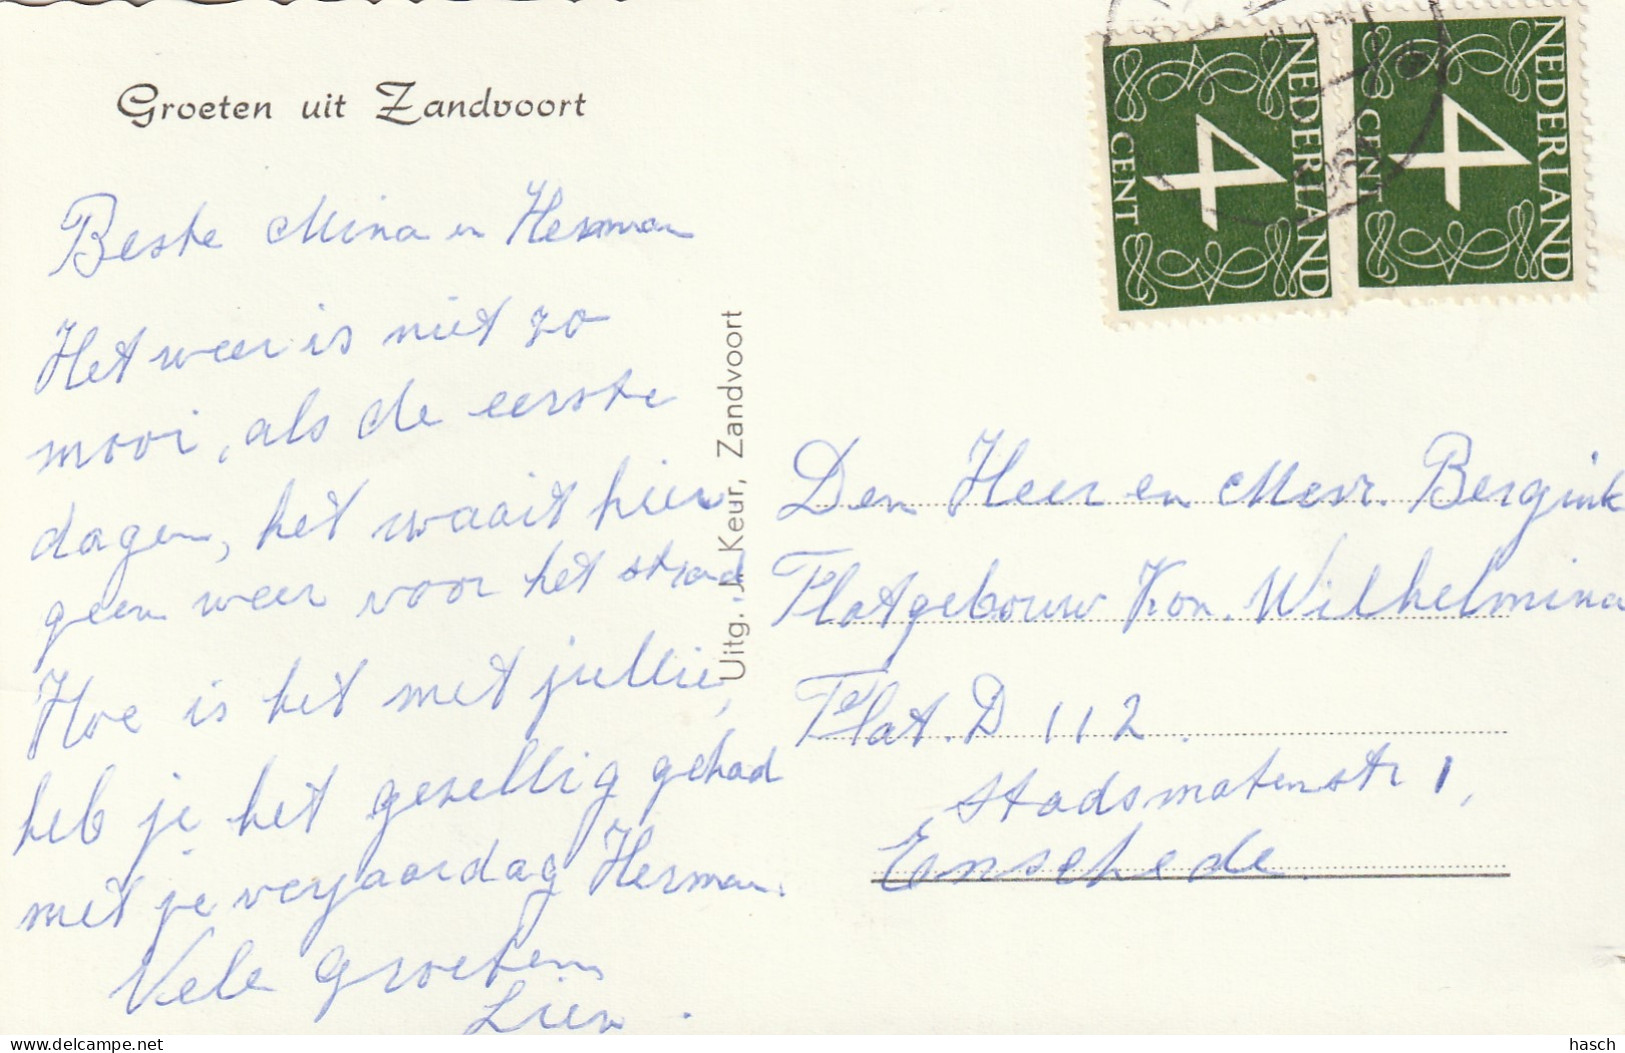 Groeten uit Zandvoort
Beste Mina en Herman
Het weer is niet zo
mooi, als de eerste
dagen, het waait hier
geen weer voor het strand
Hoe is het met jullie,
heb je het gezellig gehad
met je verjaardag Herman.
Vele groeten
Lien.
Uitg. J. Keur, Zandvoort
NEDERLAND
4
CENT
NEDERLAND
4
CENT
Den Heer en Mevr. Bergink
Flatgebouw Kon. Wilhelmina
Flat. D 112.
Stadsmatenstr 1,
Enschede.
delcampe.net
hasch